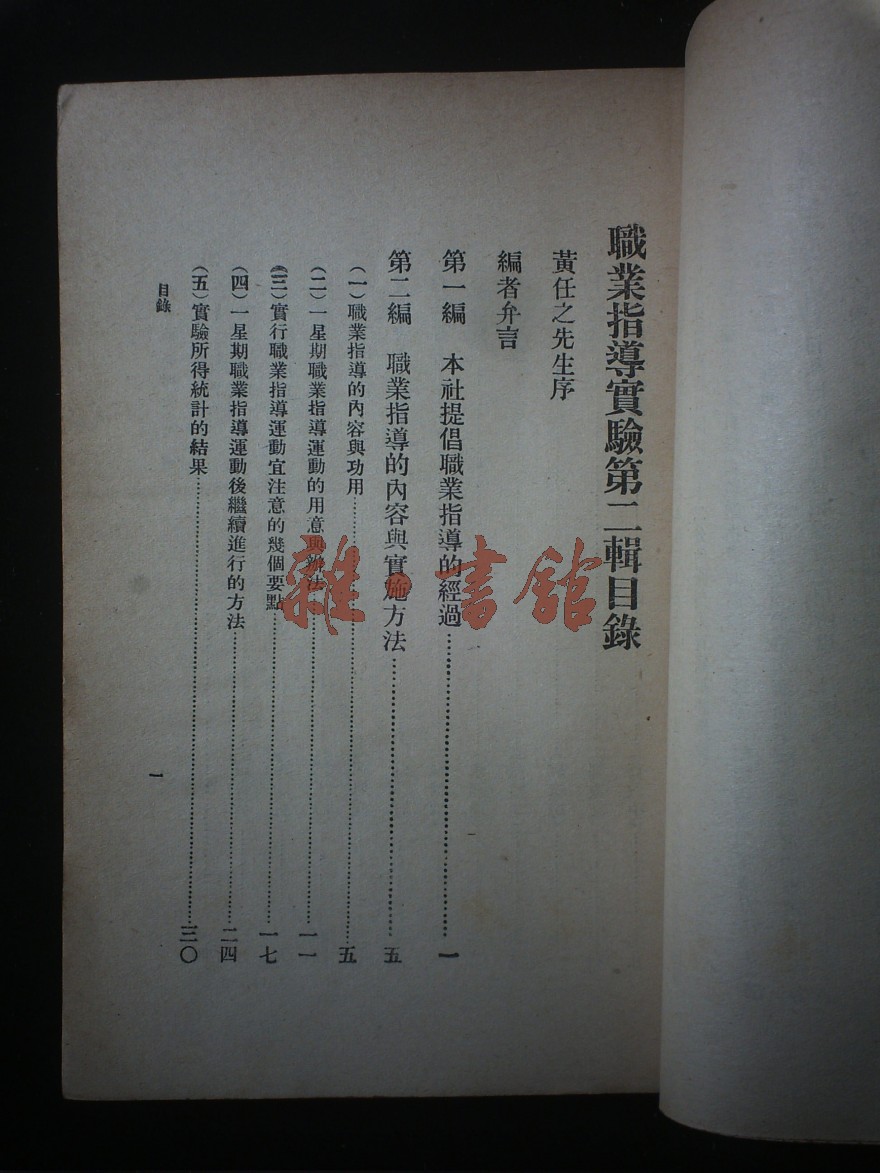 職業指導實驗第二輯目錄
黃任之先生序
編者弁言
第一編 本社提倡職業指導的經過……一
第二編 職業指導的內容與實施方法……五
(一)職業指導的內容與功用……五
(二)一星期職業指導運動的用意與辦法……一一
(三)實行職業指導運動宜注意的幾個要點……一七
(四)一星期職業指導運動後繼續進行的方法……二四
(五)實驗所得統計的結果……三〇
目錄
一
雜·書館